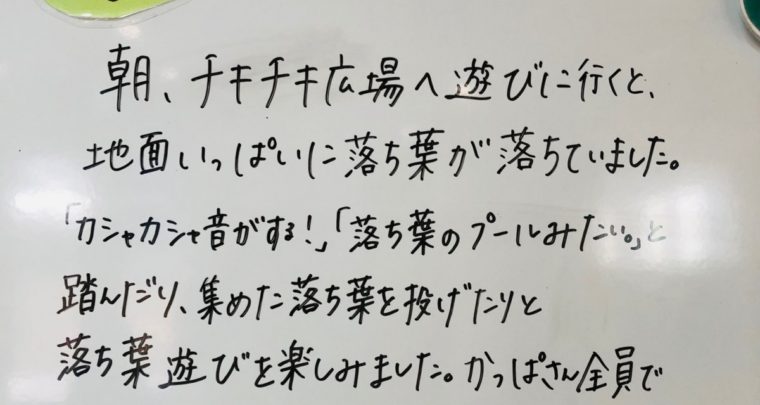 朝、チキチキ広場へ遊びに行くと、
地面いっぱいに落ち葉が落ちていました。
「カシャカシャ音がする!」「落ち葉のプールみたい。」と
踏んだり、集めた落ち葉を投げたりと
落ち葉遊びを楽しみました。かっぱさん全員で